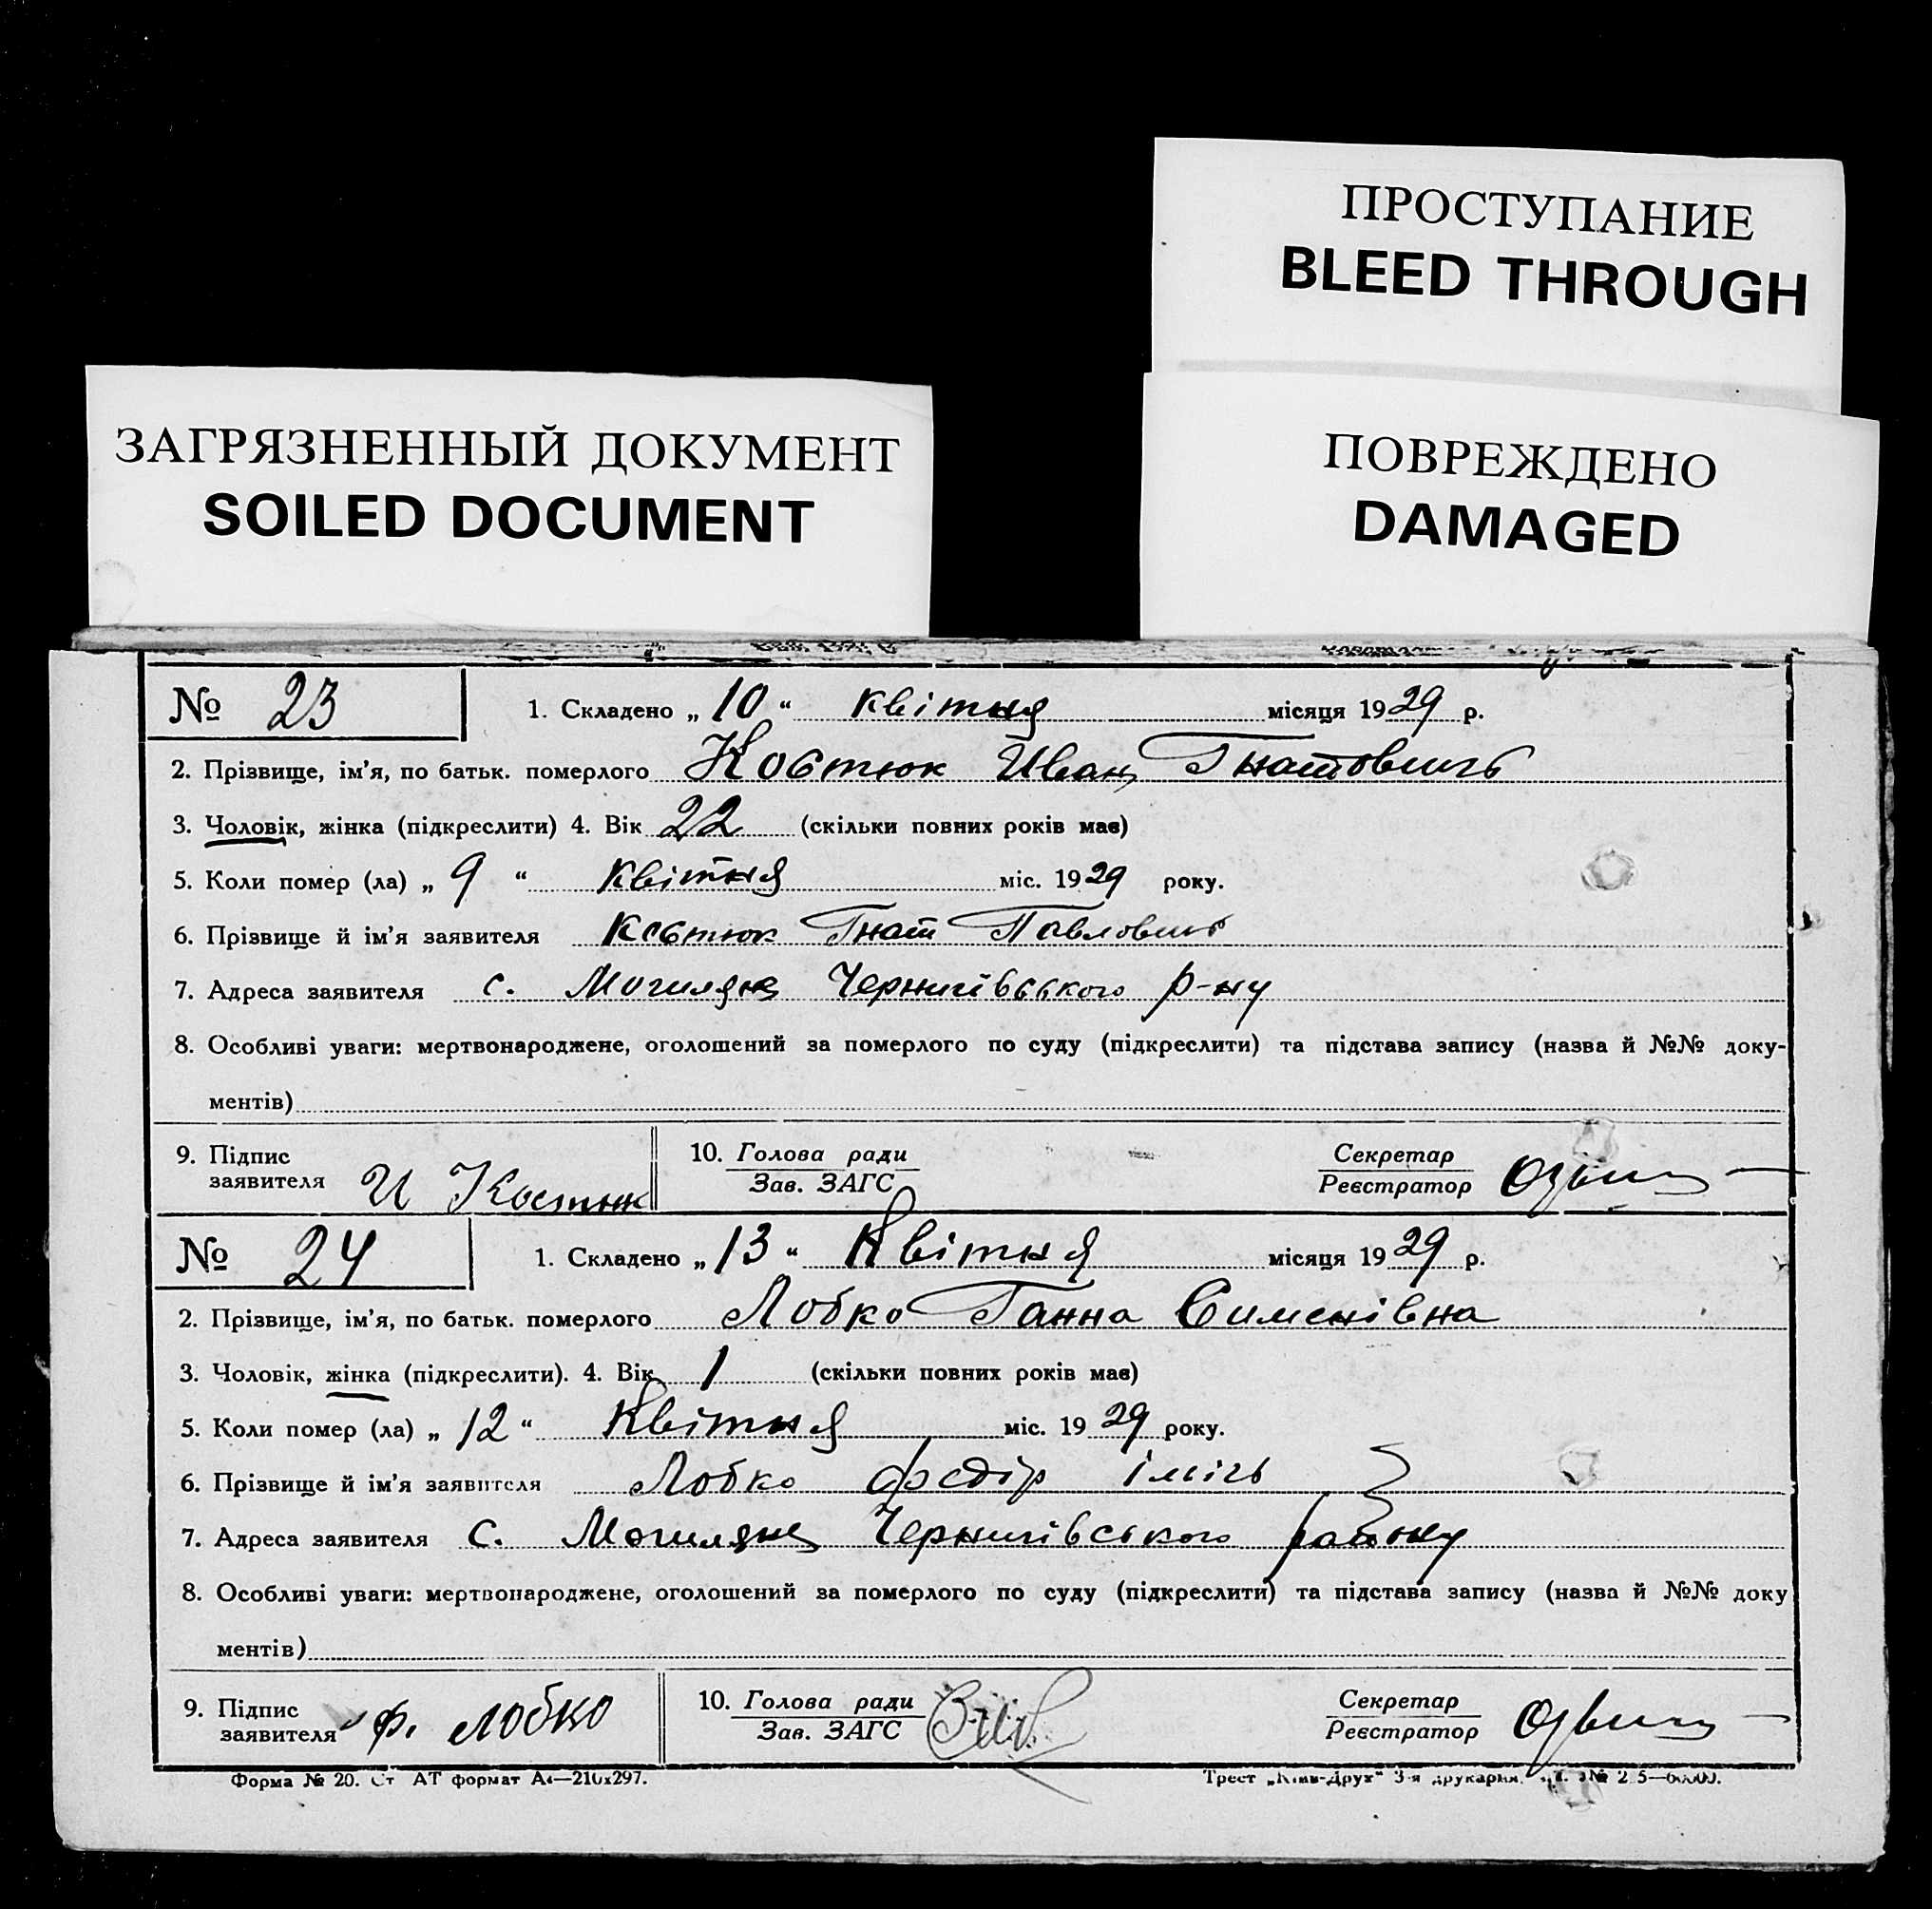 ПРОСТУПАНИЕ
BLEED THROUGH
ЗАГРЯЗНЕННЫЙ ДОКУМЕНТ
SOILED DOCUMENT
ПОВРЕЖДЕНО
DAMAGED
№ 23 1. Складено „ 10 “ квітня місяця 1929 р.
2. Прізвище, ім'я, по батьк. померлого Костюк Иван Гнатовичь
3. Чоловік, жінка (підкреслити) 4. Вік 22 (скільки повних років має)
5. Коли помер (ла) „ 9 “ квітня міс. 1929 року.
6. Прізвище й ім'я заявителя Костюк Гнат Павловичь
7. Адреса заявителя с. Чернигівського р-ну
8. Особливі уваги: мертвонароджене, оголошений за померлого по суду (підкреслити) та підстава запису (назва й №№ доку-
ментів)
9. Підпис заявителя И Костюк 10. Голова ради Зав. ЗАГС Секретар Реєстратор
№ 24 1. Складено „ 13 “ Квітня місяця 1929 р.
2. Прізвище, ім'я, по батьк. померлого Лобко Ганна Сименівна
3. Чоловік, жінка (підкреслити). 4. Вік 1 (скільки повних років має)
5. Коли помер (ла) „ 12 “ Квітня міс. 1929 року.
6. Прізвище й ім'я заявителя Лобко Федір
7. Адреса заявителя с. Чернигівського району
8. Особливі уваги: мертвонароджене, оголошений за померлого по суду (підкреслити) та підстава запису (назва й №№ доку
ментів)
9. Підпис заявителя Ф. Лобко 10. Голова ради Зав. ЗАГС Секретар Реєстратор
Форма № 20. Ст АТ формат А4—210х297. Трест „Київ-Друк“ 3-я друкарня.